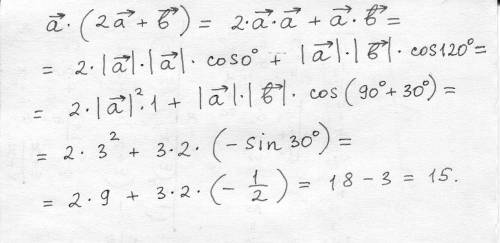 a⃗ · (2a⃗ + b⃗) = 2·a⃗·a⃗ + a⃗·b⃗ =
= 2·|a⃗|·|a⃗| · cos0° + |a⃗|·|b⃗| · cos120° =
= 2·|a⃗|²·1 + |a⃗|·|b⃗| · cos(90°+30°) =
= 2·3² + 3·2·(-sin 30°) =
= 2·9 + 3·2·(-1/2) = 18 - 3 = 15.